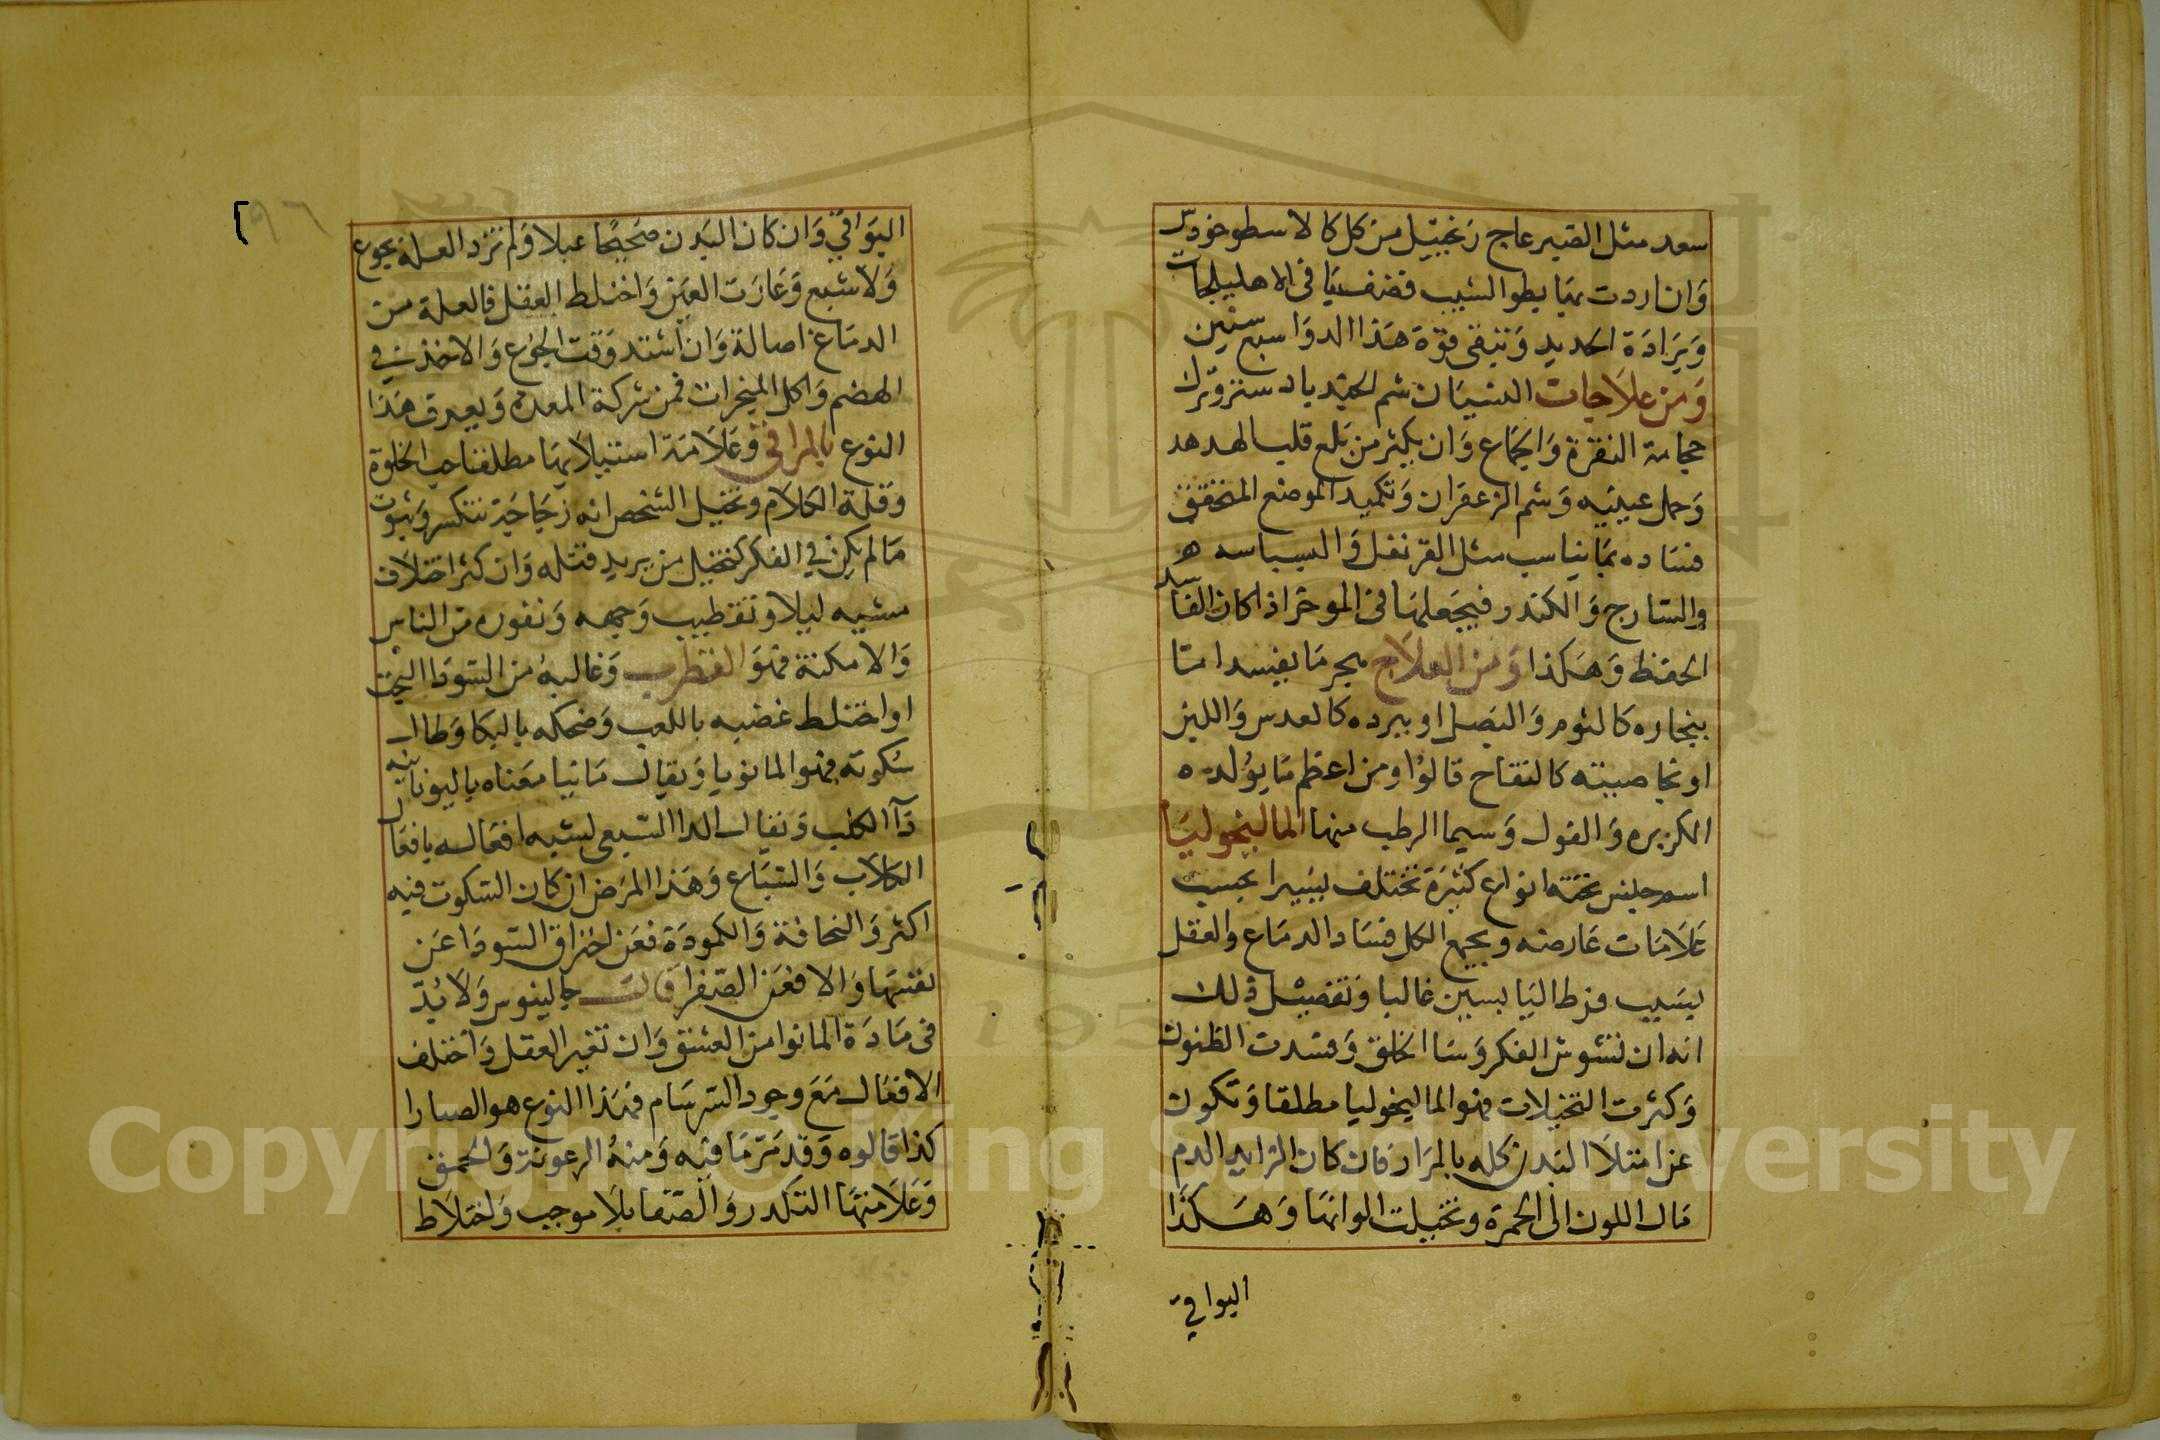 سعد مثل الصبر عاج زنجبيل من كل كالاسطوخودس
وان اردت بما يطو الشيب فضف ليا فى الاهليلجات
وبرادة الحديد وتبقى قوة هذا الدوا سبع سنين
ومن علاجات النسيان شم الجندبادستر وترك
حجامة النقرة والجماع وان يكثر من بلع قلب الهدهد
وحمل عينيه وشم الزعفران وتكميد الموضع المتحقق
فساده بما يناسب مثل القرنفل والبسباسه
والسارج والكندر فيجعلها فى الموخر اذا كان الفاسد
الحفظ وهكذا ومن العلاج هجر ما يفسد امتا
ببخاره كالثوم والبصل او ببرده كالعدس واللبن
او بخاصيته كالتفاح قالوا ومن اعظم ما يولده
الكزبره والفول وسيما الرطب منها الماليخوليا
اسم جنس تحته انواع كثيرة تختلف يسيرا بحسب
علامات عارضه ويجمع الكل فساد الدماغ والعقل
بسبب فرط اليابسين غالبا وتفصيل ذلك
انه ان تشوش الفكر وسا الخلق وفسدت الظنون
وكثرت التخيلات فهو الماليخوليا مطلقا وتكون
عن امتلا البدن كله بالمرار فان كان الزايد الدم
مال اللون الى الحمرة وتخيلت الوانها وهكذا
اليواقي
اليواقي وان كان البدن صحيحا عبلا ولم تزد العلة بجوع
ولا شبع وغارت العين واختلط العقل فالعلة من
الدماغ اصالة وان اشتد وقت الجوع والاخذ في
الهضم واكل المبخرات فمن شركة المعدة ويعرف هذا
النوع بالمراقي وعلامة استيلايها مطلقا حب الخلوة
وقلة الكلام وتخيل الشخص انه زجاجة تنكسر وثبوت
ما لم يكن في الفكر كتخيل من يريد قتله وان كثر اختلاف
مشيه ليلا وتقطيب وجهه ونفوره من الناس
والامكنة فهو القطرب وغالبه من السودا البحت
او اختلط غضبه باللعب وضحكه بالبكا وطال
سكوته فهو المانويا ويقال مانيا معناه باليونانيه
دا الكلب ويقال الدا السبعي لشبه افعاله بافعال
الكلاب والسباع وهذا المرض ان كان السكوت فيه
اكثر والنحافة والكمودة فعن احتراق السودا عن
نفسها والا فعن الصفرا قال جالينوس ولا بد
فى مادة المانوا من العشق وان تغير العقل واختلف
الافعال مع وجود السرسام فهذا النوع هو الصبارا
كذا قالوه وقد مر ما فيه ومنه الرعونة والحمق
وعلامتها التكدر والصفا بلا موجب واختلاط